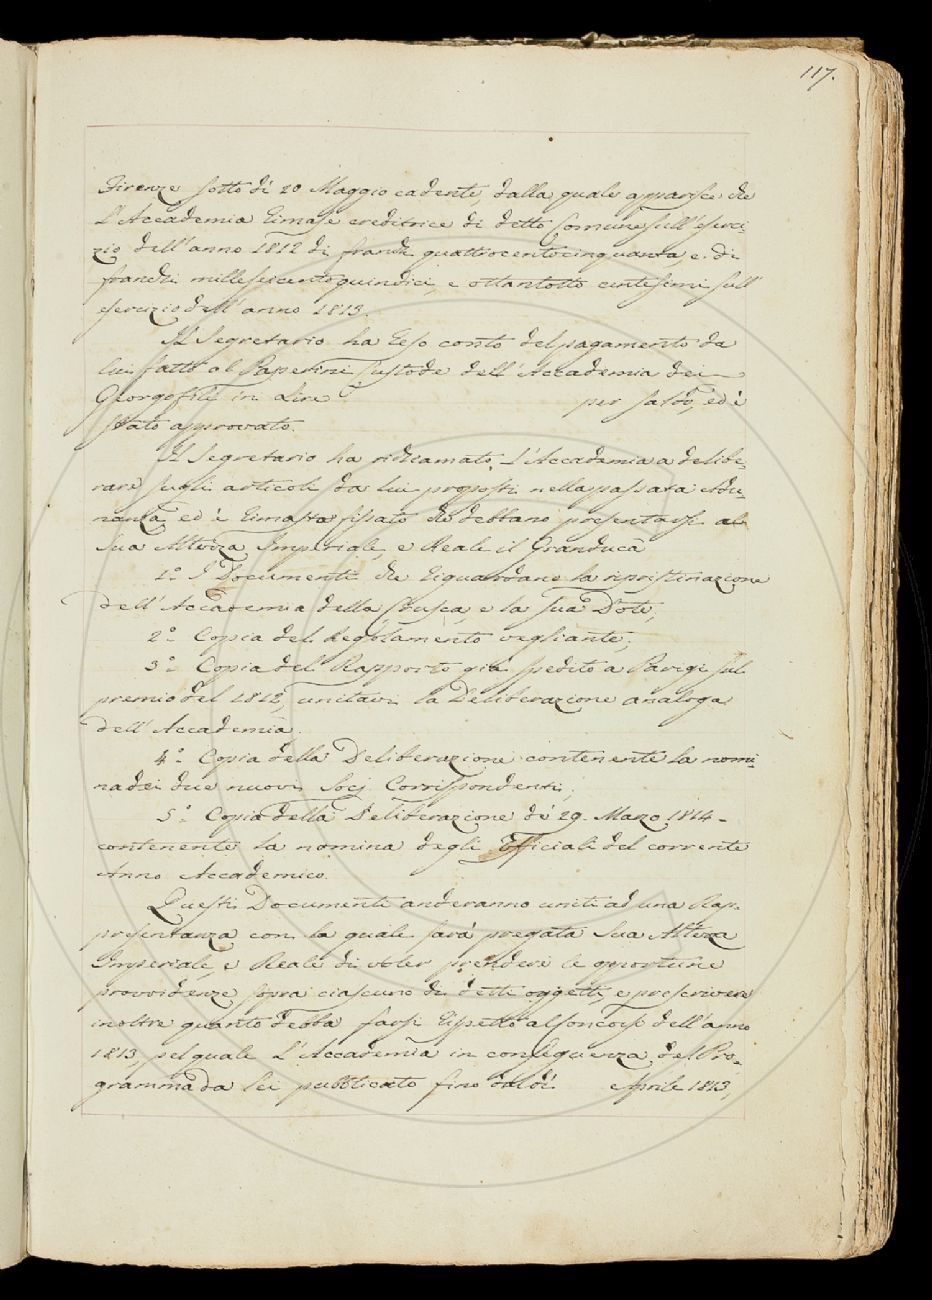 117.
Firenze sotto dì 20 Maggio cadente, dalla quale apparisce che
L'Accademia rimase creditrice di detto Comune sull'eserci-
zio dell'anno 1812 di franchi quattrocentocinquanta, e di
franchi milleseicentoquindici, e ottantotto centesimi sull'
esercizio dell'anno 1813.
Il Segretario ha reso conto del pagamento da
lui fatto al Paperini Custode dell'Accademia dei
Georgofili in Lire per saldo, ed è
stato approvato.
Il Segretario ha richiamato L'Accademia a delibe-
rare sugli articoli da lui proposti nella passata Adu-
nanza ed è rimasto fissato che debbano presentarsi al
Sua Altezza Imperiale, e Reale il Granduca
1.° I Documenti che riguardano la ripristinazione
dell'Accademia della Crusca, e la sua Dote;
2.° Copia del Regolamento vegliante;
3.° Copia del Rapporto già spedito a Parigi sul
premio del 1812, unitavi la Deliberazione analoga
dell'Accademia.
4.° Copia della Deliberazione contenente la nomi-
na dei due nuovi Socj Corrispondenti;
5.° Copia della Deliberazione dè 29. Marzo 1814 -
contenente la nomina degli Officiali del corrente
Anno Accademico.
Questi Documenti anderanno uniti ad una Rap-
presentanza con la quale sarà pregata Sua Altezza
Imperiale, e Reale di voler prendere le opportune
provvidenze sopra ciascuno di detti oggetti, e prescrivere
inoltre quanto debba farsi rispetto al Concorso dell'anno
1813, pel quale L'Accademia in conseguenza del Pro-
gramma da lei pubblicato fino dal dì Aprile 1813,